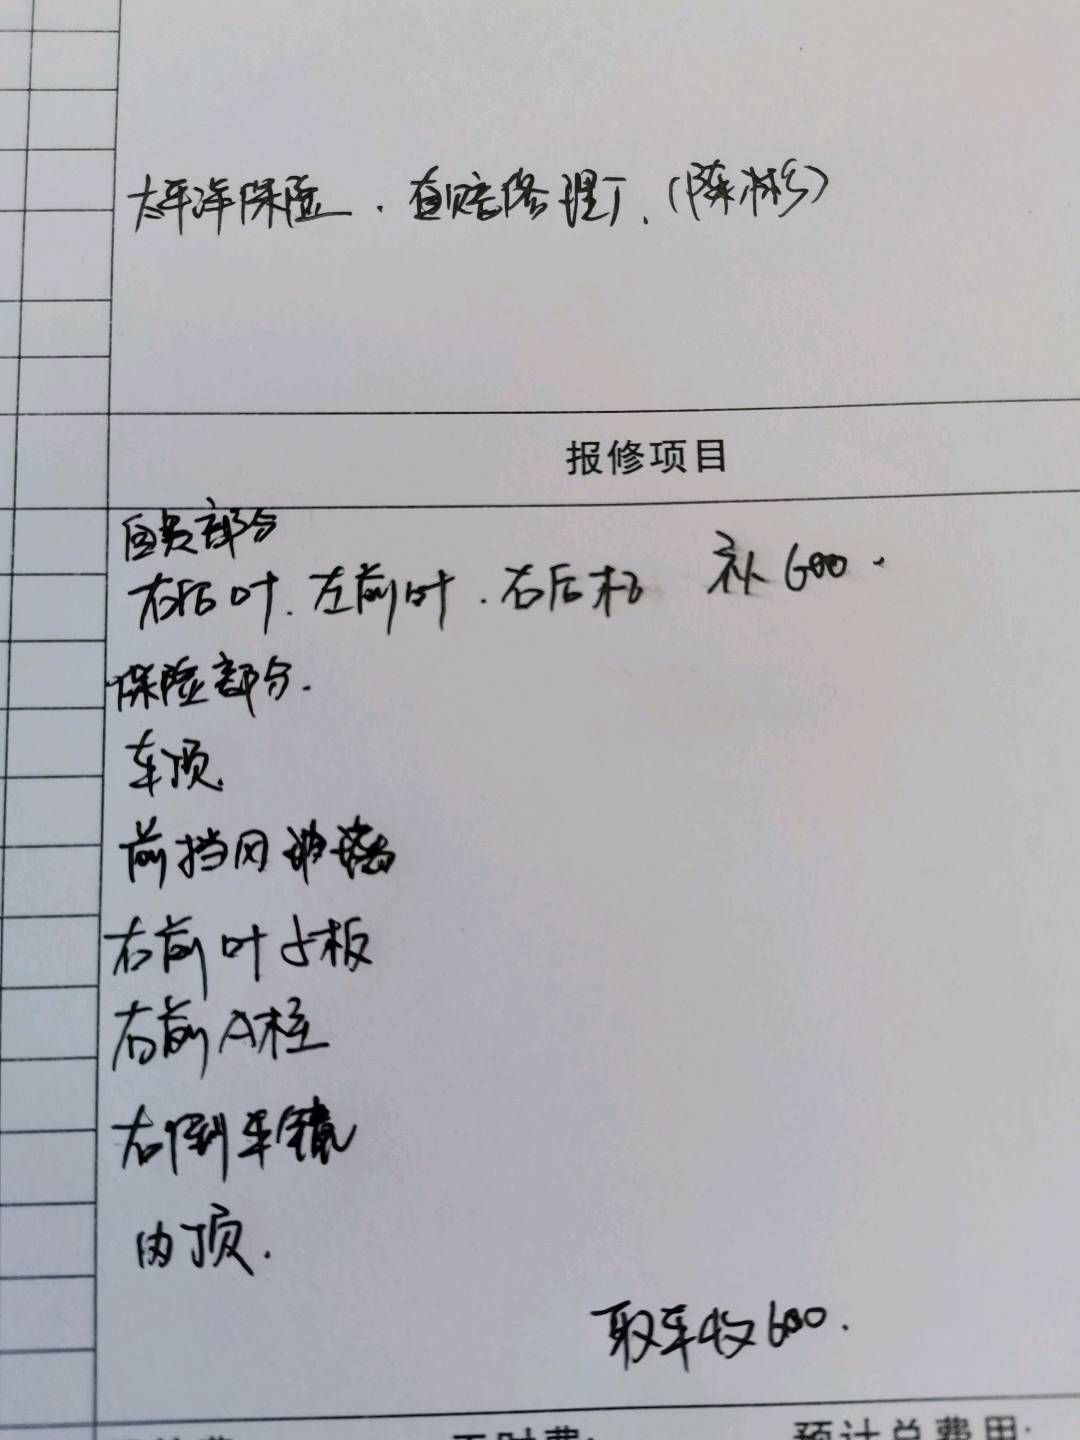 太平洋保险．直赔修理厂．(陈彬)
报修项目
自费部分
右后叶．左前叶．右后杠 补600．
保险部分．
车顶．
前挡风玻璃
右前叶子板
右前A柱
右倒车镜
内顶．
取车收600．
工时费： 预计总费用：